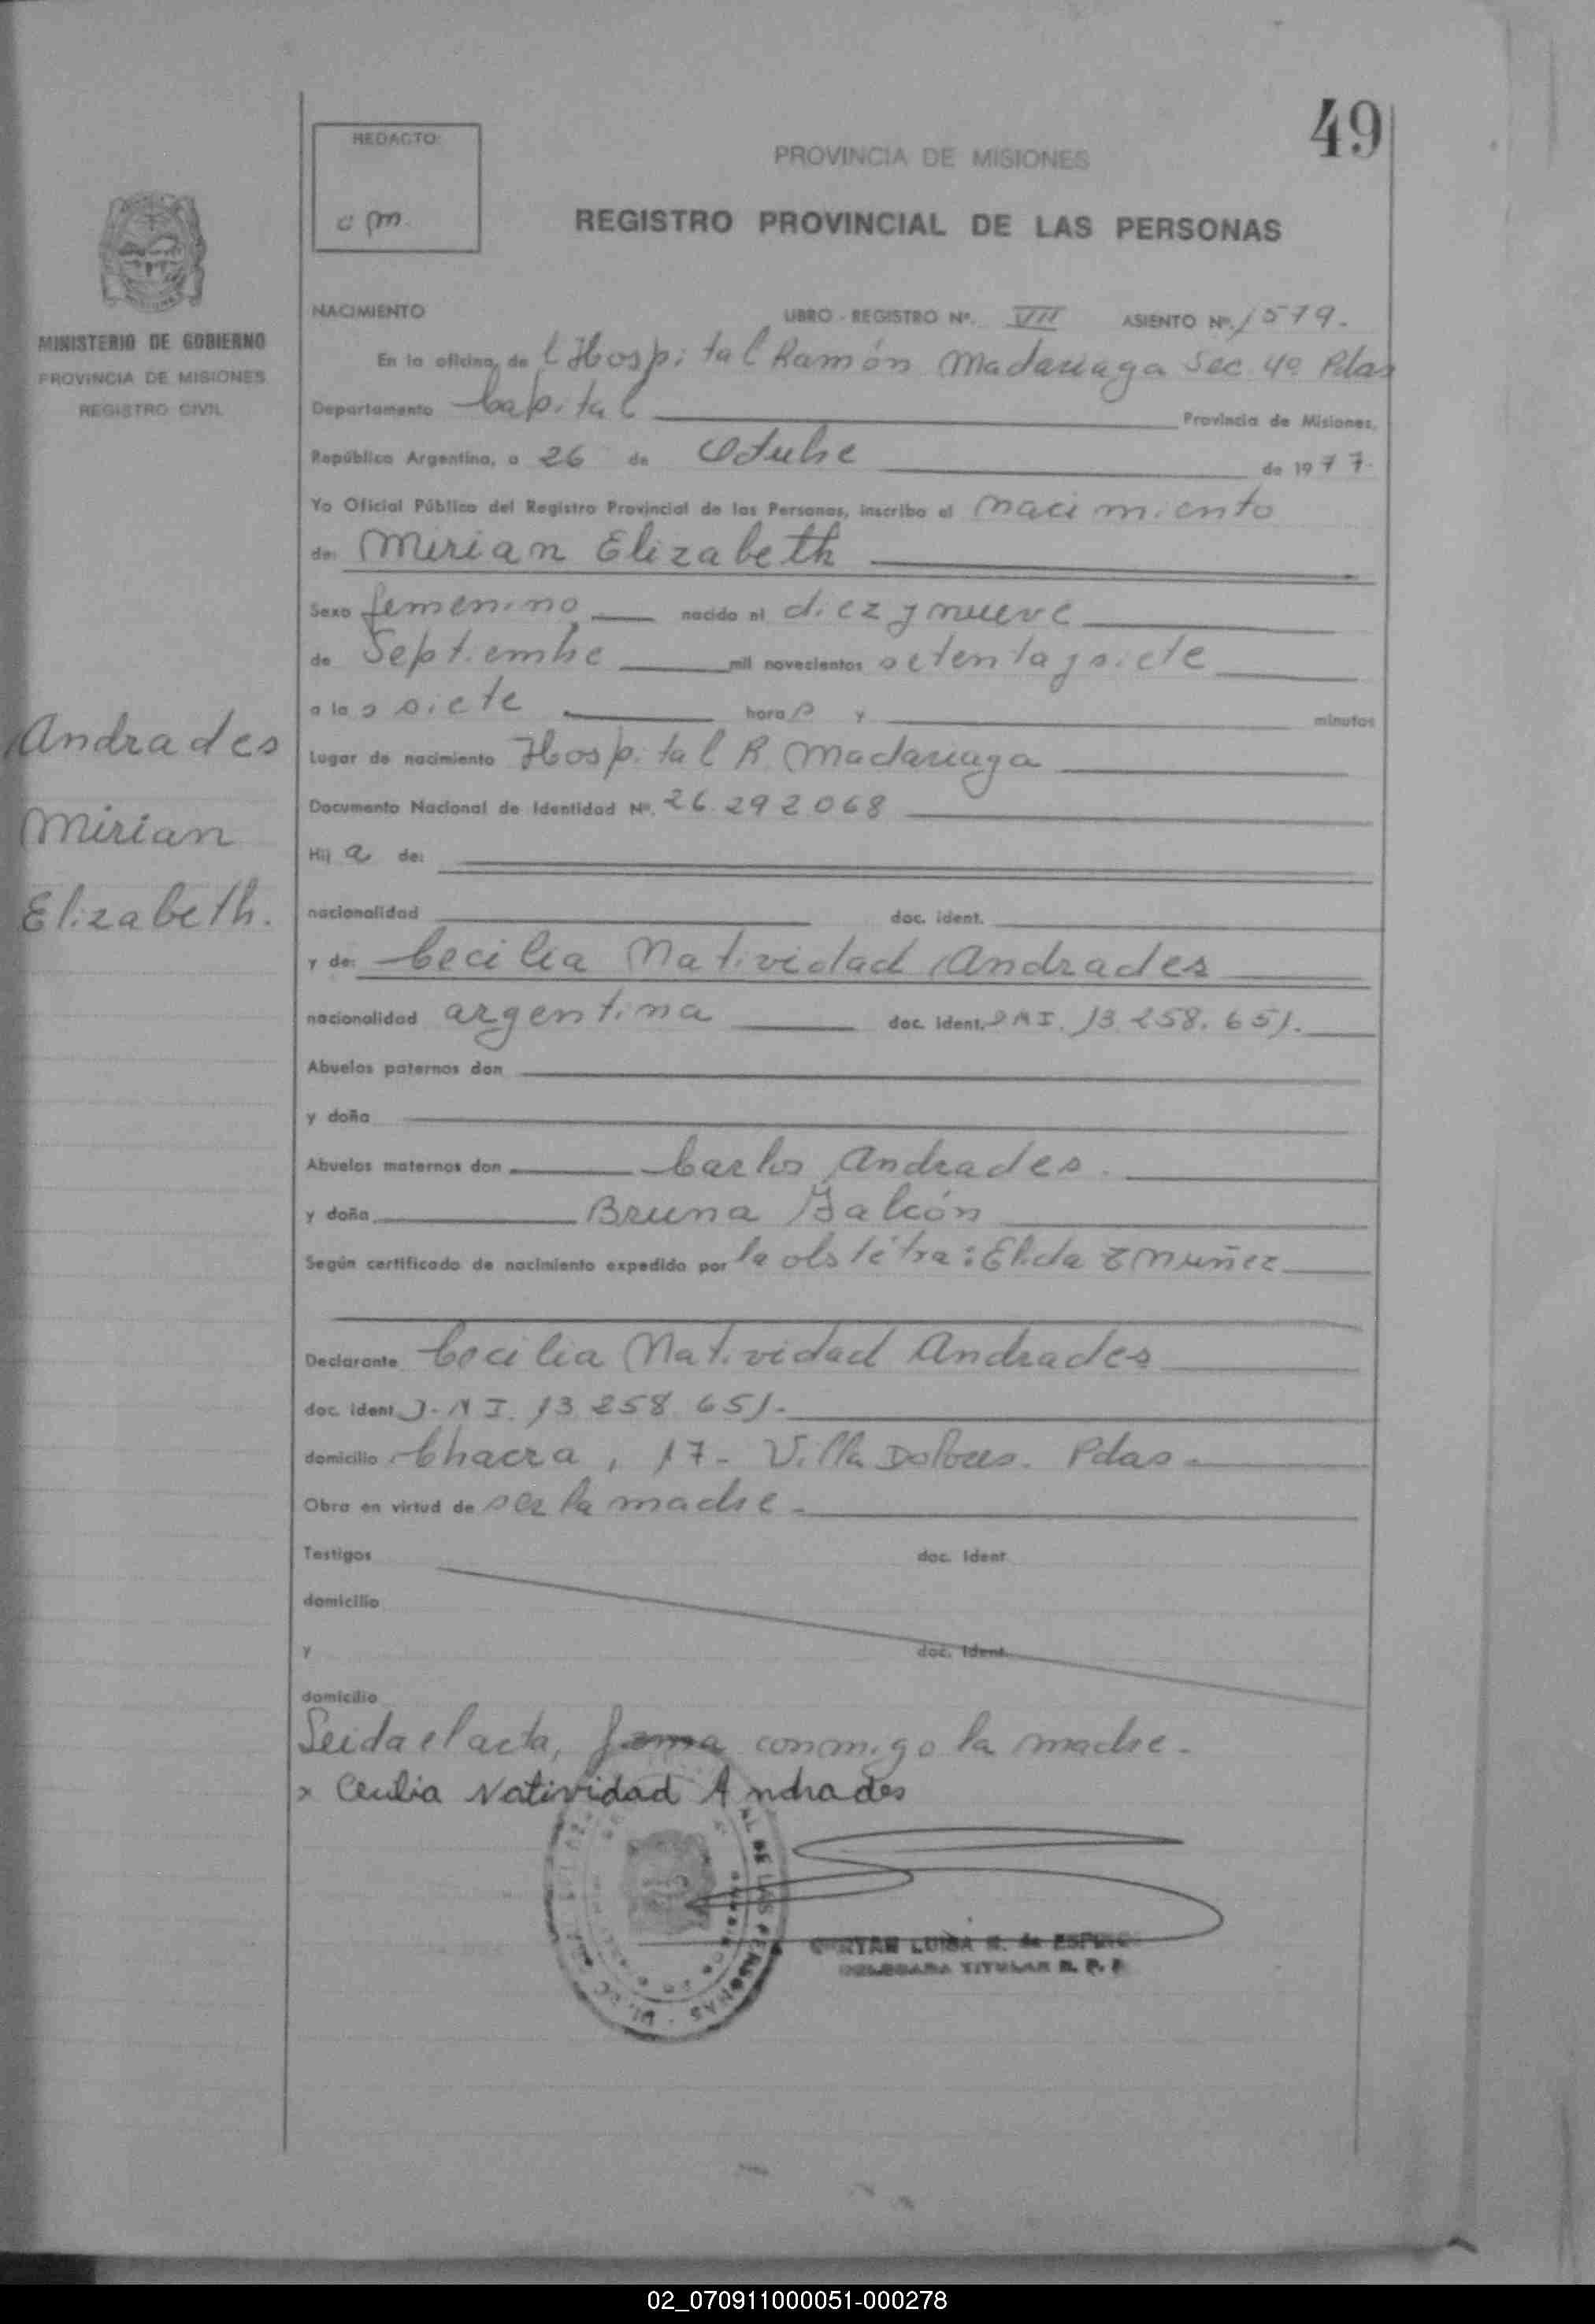 49
REDACTO:
PROVINCIA DE MISIONES
REGISTRO PROVINCIAL DE LAS PERSONAS
MINISTERIO DE GOBIERNO
PROVINCIA DE MISIONES
REGISTRO CIVIL
NACIMIENTO LIBRO - REGISTRO Nº. VII ASIENTO Nº. 1579.
En la oficina de l Hospital Ramón Madariaga Sec 4º Pdas
Departamento Capital Provincia de Misiones,
República Argentina, a 26 de Octubre de 1977.
Yo Oficial Público del Registro Provincial de las Personas, inscribo el nacimiento
de: Mirian Elizabeth
Sexo femenino nacido el diez y nueve
de Septiembre mil novecientos setenta y siete
a las siete horas y minutos
Andrades
Mirian
Elizabeth.
Lugar de nacimiento Hospital R. Madariaga
Documento Nacional de Identidad Nº. 26.292.068
Hij a de:
nacionalidad doc. ident.
y de: Cecilia Natividad Andrades
nacionalidad argentina doc. ident. DNI. 13.258.651.
Abuelos paternos don
y doña
Abuelos maternos don Carlos Andrades.
y doña Bruna
Según certificado de nacimiento expedido por la obstétra: Elida E Muñez
Declarante Cecilia Natividad Andrades
doc. ident D.N I. 13.258.651.
domicilio Chacra, 17- Villa Dolores. Pdas.
Obra en virtud de ser la madre.
Testigos doc. Ident
domicilio
y doc. Ident.
domicilio
Leida el acta, firma conmigo la madre.
x Cecilia Natividad Andrades
LUISA DE ESPIN
DELEGADA TITULAR R. P. P.
02_070911000051-000278